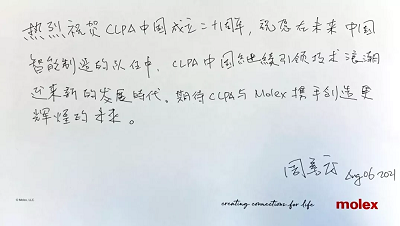 热烈祝贺CLPA中国成立二十周年,祝愿在未来中国
智能制造的队伍中,CLPA中国继续引领技术浪潮
迎来新的发展时代。期待CLPA与Molex携手创造更
辉煌的未来。
Aug 06 2021
© Molex, LLC
creating connections for life
molex